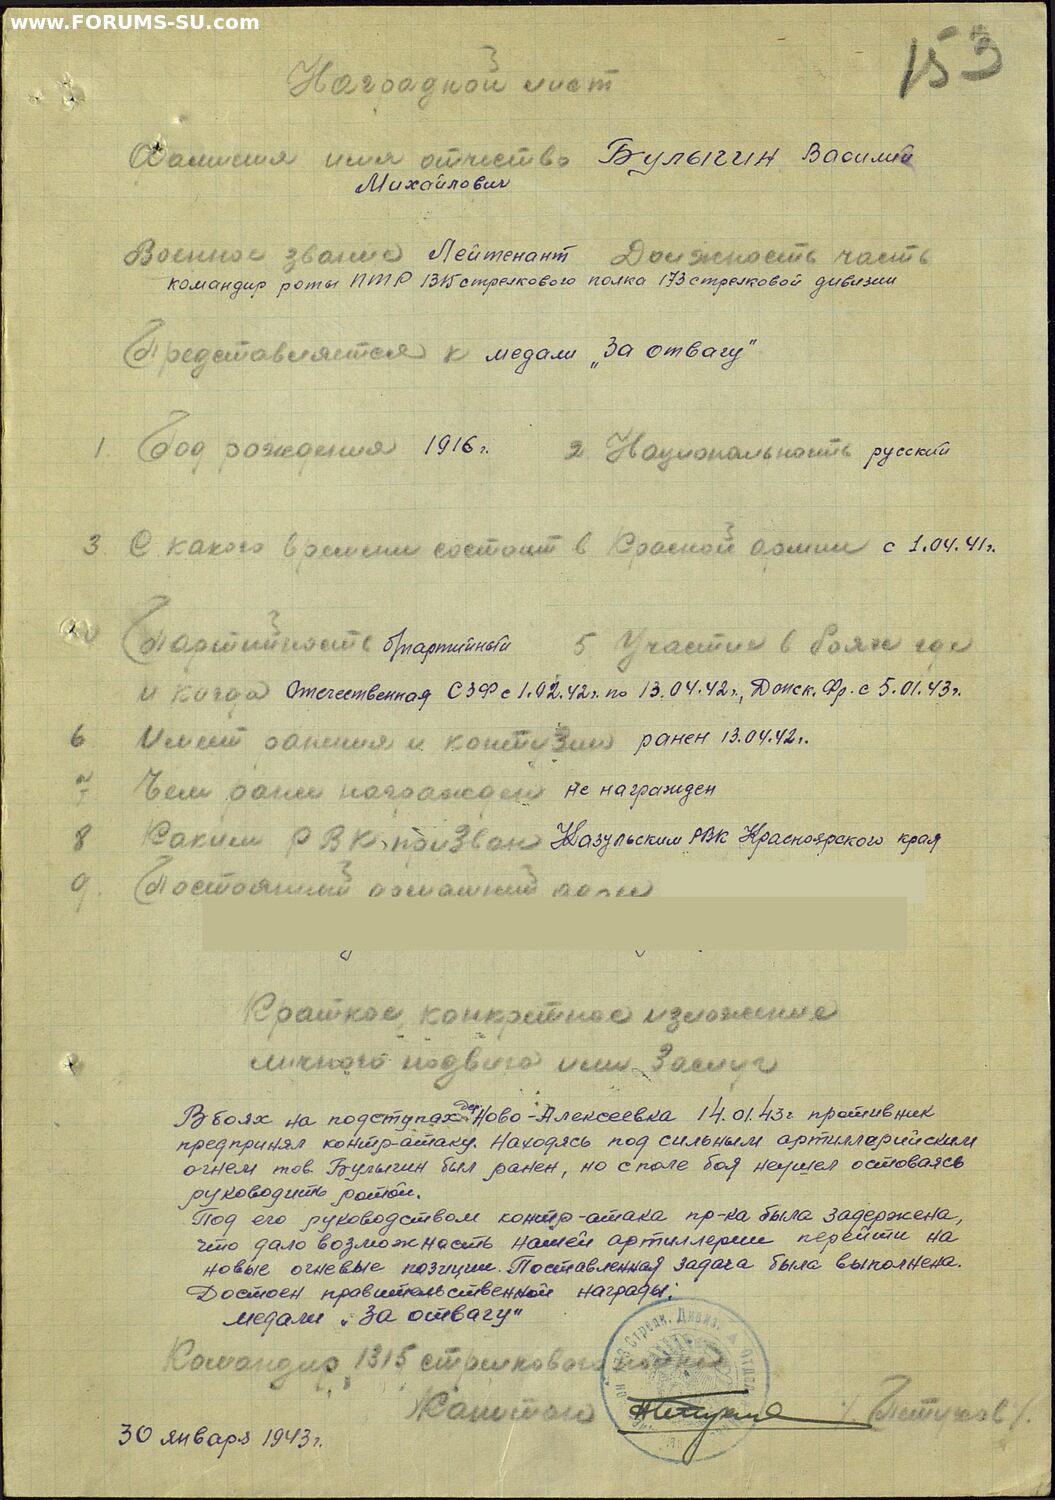 www.FORUMS-SU.com
153
Наградной лист
Фамилия имя отчество Булыгин Василий
Михайлович
Военное звание Лейтенант Должность часть
командир роты ПТР 1315 стрелкового полка 173 стрелковой дивизии
Представляется к медали „За отвагу"
1. Год рождения 1916 г. 2 Национальность русский
3 С какого времени состоит в Красной армии с 1.04.41 г.
Партийность б/партийный 5 Участие в боях где
и когда Отечественная СЗФ с 1.02.42 г. по 13.04.42 г., Донск. Фр. с 5.01.43 г.
6 Имеет ранения и контузии ранен 13.04.42 г.
7 Чем ранее награжден не награжден
8 Каким РВК призван Назульским РВК Красноярского края
9. Постоянный домашний адрес
Краткое, конкретное изложение
личного подвига или заслуг
В боях на подступах дер. Ново-Алексеевка 14.01.43 г противник
предпринял контр-атаку. Находясь под сильным артиллерийским
огнем тов. Булыгин был ранен, но с поле боя неушел остоваясь
руководить ротой.
Под его руководством контр-атака пр-ка была задержена,
что дало возможность нашей артиллерии перейти на
новые огневые позиции. Поставленная задача была выполнена.
Достоен правительственной награды:
медали „За отвагу"
Командир 1315 стрелкового полка
Капитан /Петухов/.
30 января 1943 г.